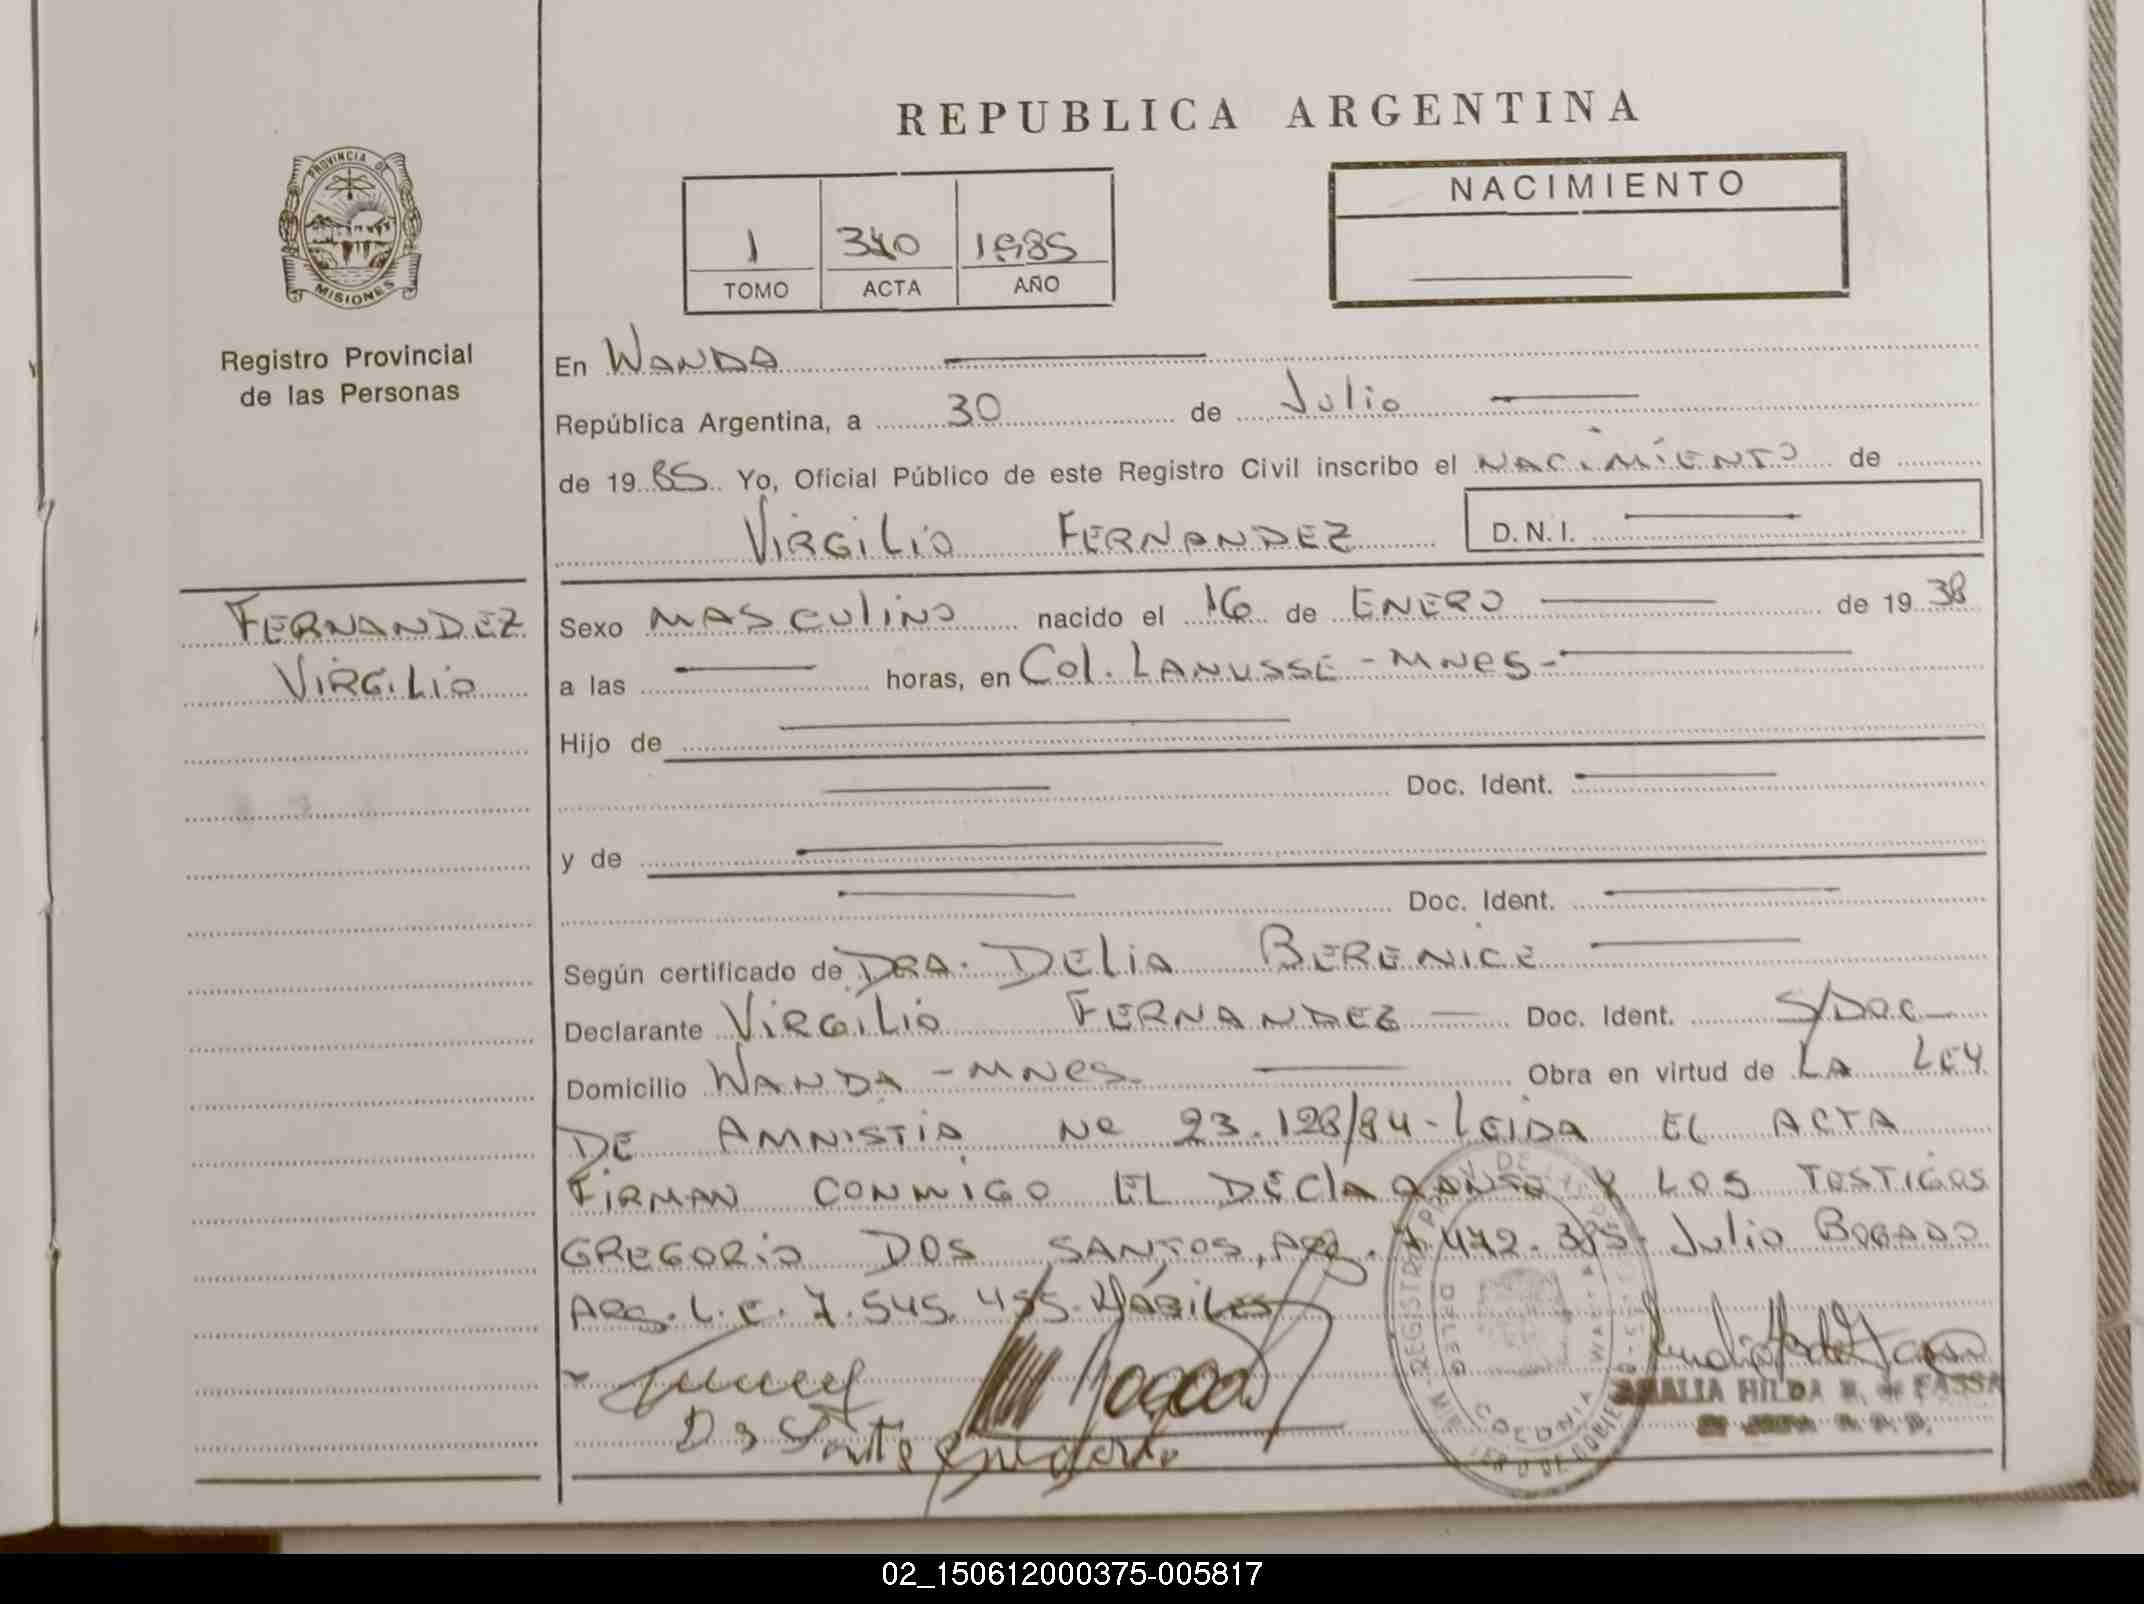 REPUBLICA ARGENTINA
PROVINCIA DE
MISIONES
Registro Provincial
de las Personas
1 340 1985
TOMO ACTA AÑO
NACIMIENTO
En WANDA
República Argentina, a 30 de Julio
de 1985 Yo, Oficial Público de este Registro Civil inscribo el NACIMIENTO de
VIRGILIO FERNANDEZ D.N.I.
FERNANDEZ
VIRGILIO
Sexo MASCULINO nacido el 16 de ENERO de 1938
a las horas, en Col. LANUSSE - MNES -
Hijo de
Doc. Ident.
y de
Doc. Ident.
Según certificado de DRA. DELIA BERENICE
Declarante VIRGILIO FERNANDEZ Doc. Ident. S/Doc
Domicilio WANDA - MNES. Obra en virtud de LA LEY
DE AMNISTIA Nº 23.128/84 - LEIDA EL ACTA
FIRMAN CONMIGO EL DECLARANTE Y LOS TESTIGOS
GREGORIO DOS SANTOS, ARG. 7.472.385 - Julio BOGADO
ARG. L.E. 7.545.455. HÁBILES
AMALIA HILDA
COLONIA WANDA
02_150612000375-005817